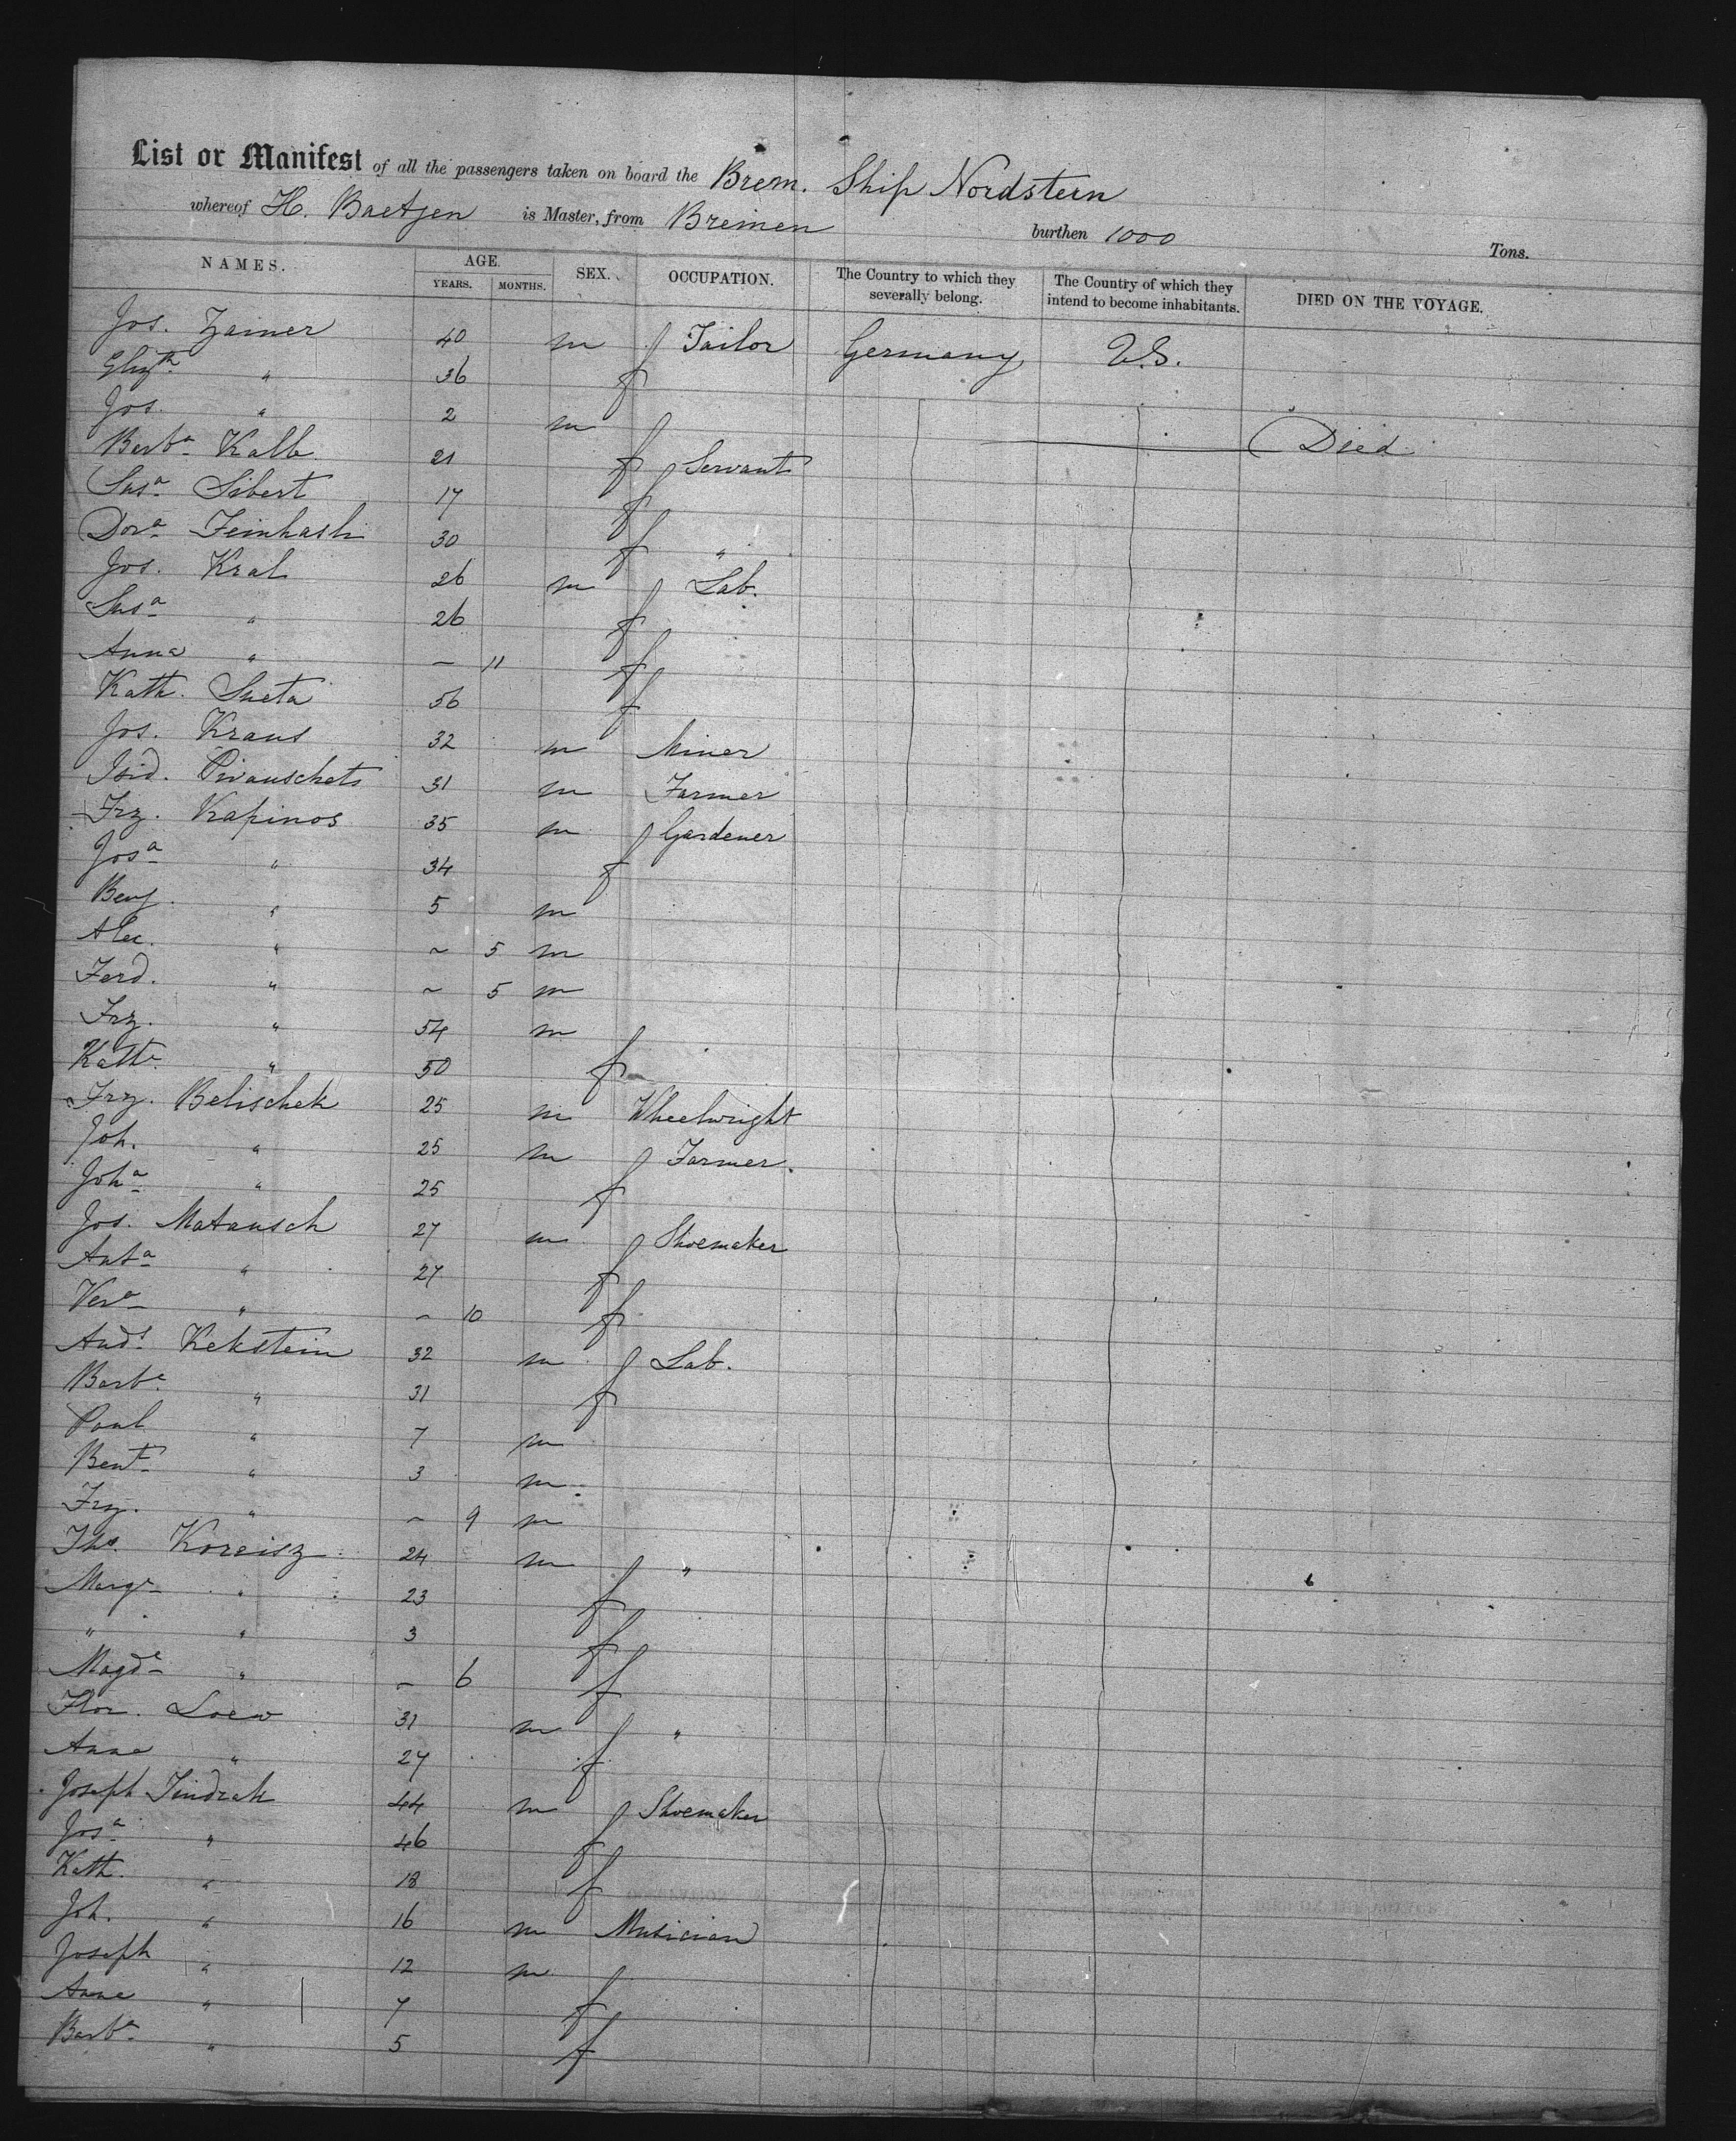 List or Manifest of all the passengers taken on board the Brem. Ship Nordstern
whereof H. Baetjen is Master, from Bremen burthen 1000 Tons.
NAMES. AGE. YEARS. MONTHS. SEX. OCCUPATION. The Country to which they severally belong. The Country of which they intend to become inhabitants. DIED ON THE VOYAGE.
Jos. Zainer 40 m Tailor Germany U.S.
Elizth " 36 f
Jos. " 2 m Died
Barba Kalb 21 f Servant
Susa Sibert 17 f
Dora Feinhash 30 f "
Jos. Kral 26 m Lab.
Susa " 26 f
Anna " – 11 f
Kath. Sueta 56 f
Jos. Kraus 32 m Miner
Isid. Pivauschets 31 m Farmer
Frz. Kapinos 35 m Gardener
Josa " 34 f
Benj. " 5 m
Alex. " ~ 5 m
Ferd. " ~ 5 m
Frz. " 54 m
Kathe " 50 f
Frz. Belischek 25 m Wheelwright
Joh. " 25 m Farmer.
Joha " 25 f
Jos. Matausch 27 m Shoemaker
Anta " 27 f
Vera " – 10 f
Ands Kekstein 32 m Lab.
Barbe " 31 f
Paul " 7 m
Bent " 3 m
Frz. " – 9 m
Ths. Koreisz 24 m "
Marge " 23 f
" " 3 f
Magde " – 6 f
Flor. Loew 31 m "
Anna " 27 f
Joseph Jindrak 44 m Shoemaker
Josa " 46 f
Kath. " 18 f
Joh. " 16 m Musician
Joseph " 12 m
Anna " 7 f
Barba " 5 f